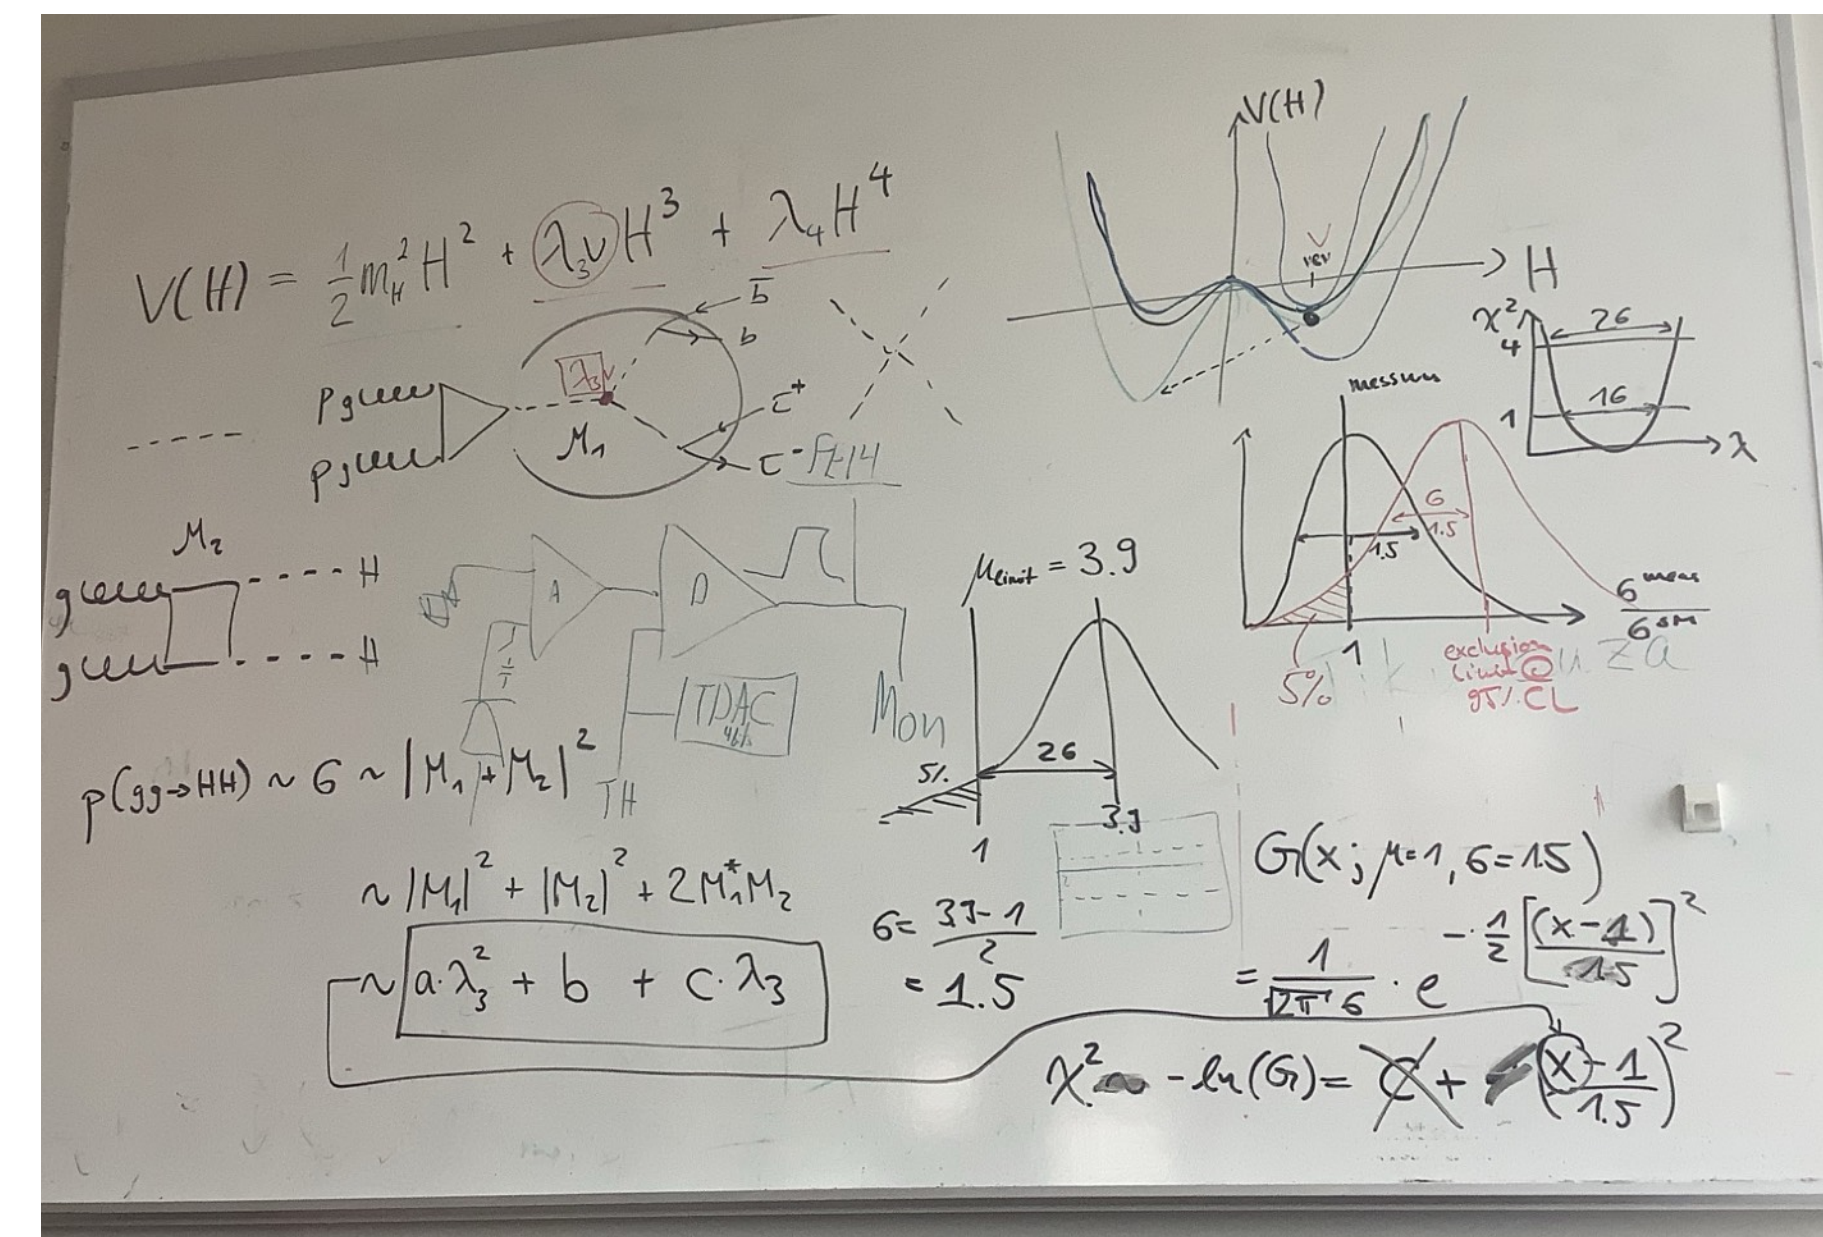 V(H) = 1/2 m_H^2 H^2 + λ_3 v H^3 + λ_4 H^4
b̄
b
λ_3 v
p g
p g
M_1
τ^+
τ^-
M_2
g
g
H
H
A
D
TDAC
4bit
TH
Mon
p(gg→HH) ~ σ ~ |M_1 + M_2|^2
~ |M_1|^2 + |M_2|^2 + 2M_1^* M_2
~ a·λ_3^2 + b + c·λ_3
V(H)
v
vev
H
χ^2
4
2σ
1
1σ
λ
σ
1.5
1.5
σ^meas
σ^SM
1
5%
exclusion
limit @
95% CL
μ_limit = 3.9
5%
2σ
1
3.9
σ = (3.9-1)/2
= 1.5
G(x; μ=1, σ=1.5)
= 1/(√2π σ) · e^(-1/2 [(x-1)/1.5]^2)
χ^2 -ln(G) = C + (x-1/1.5)^2